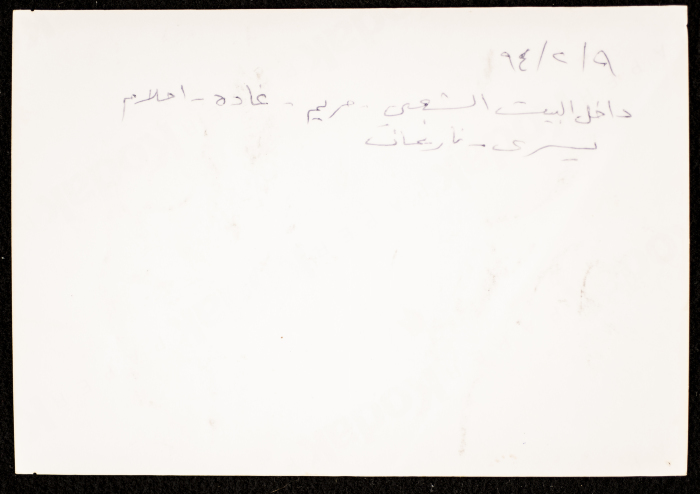 ٩٤/٢/٩
داخل البيت الشعبي - مريم - غاده - احلام
يسرى - ناريمان